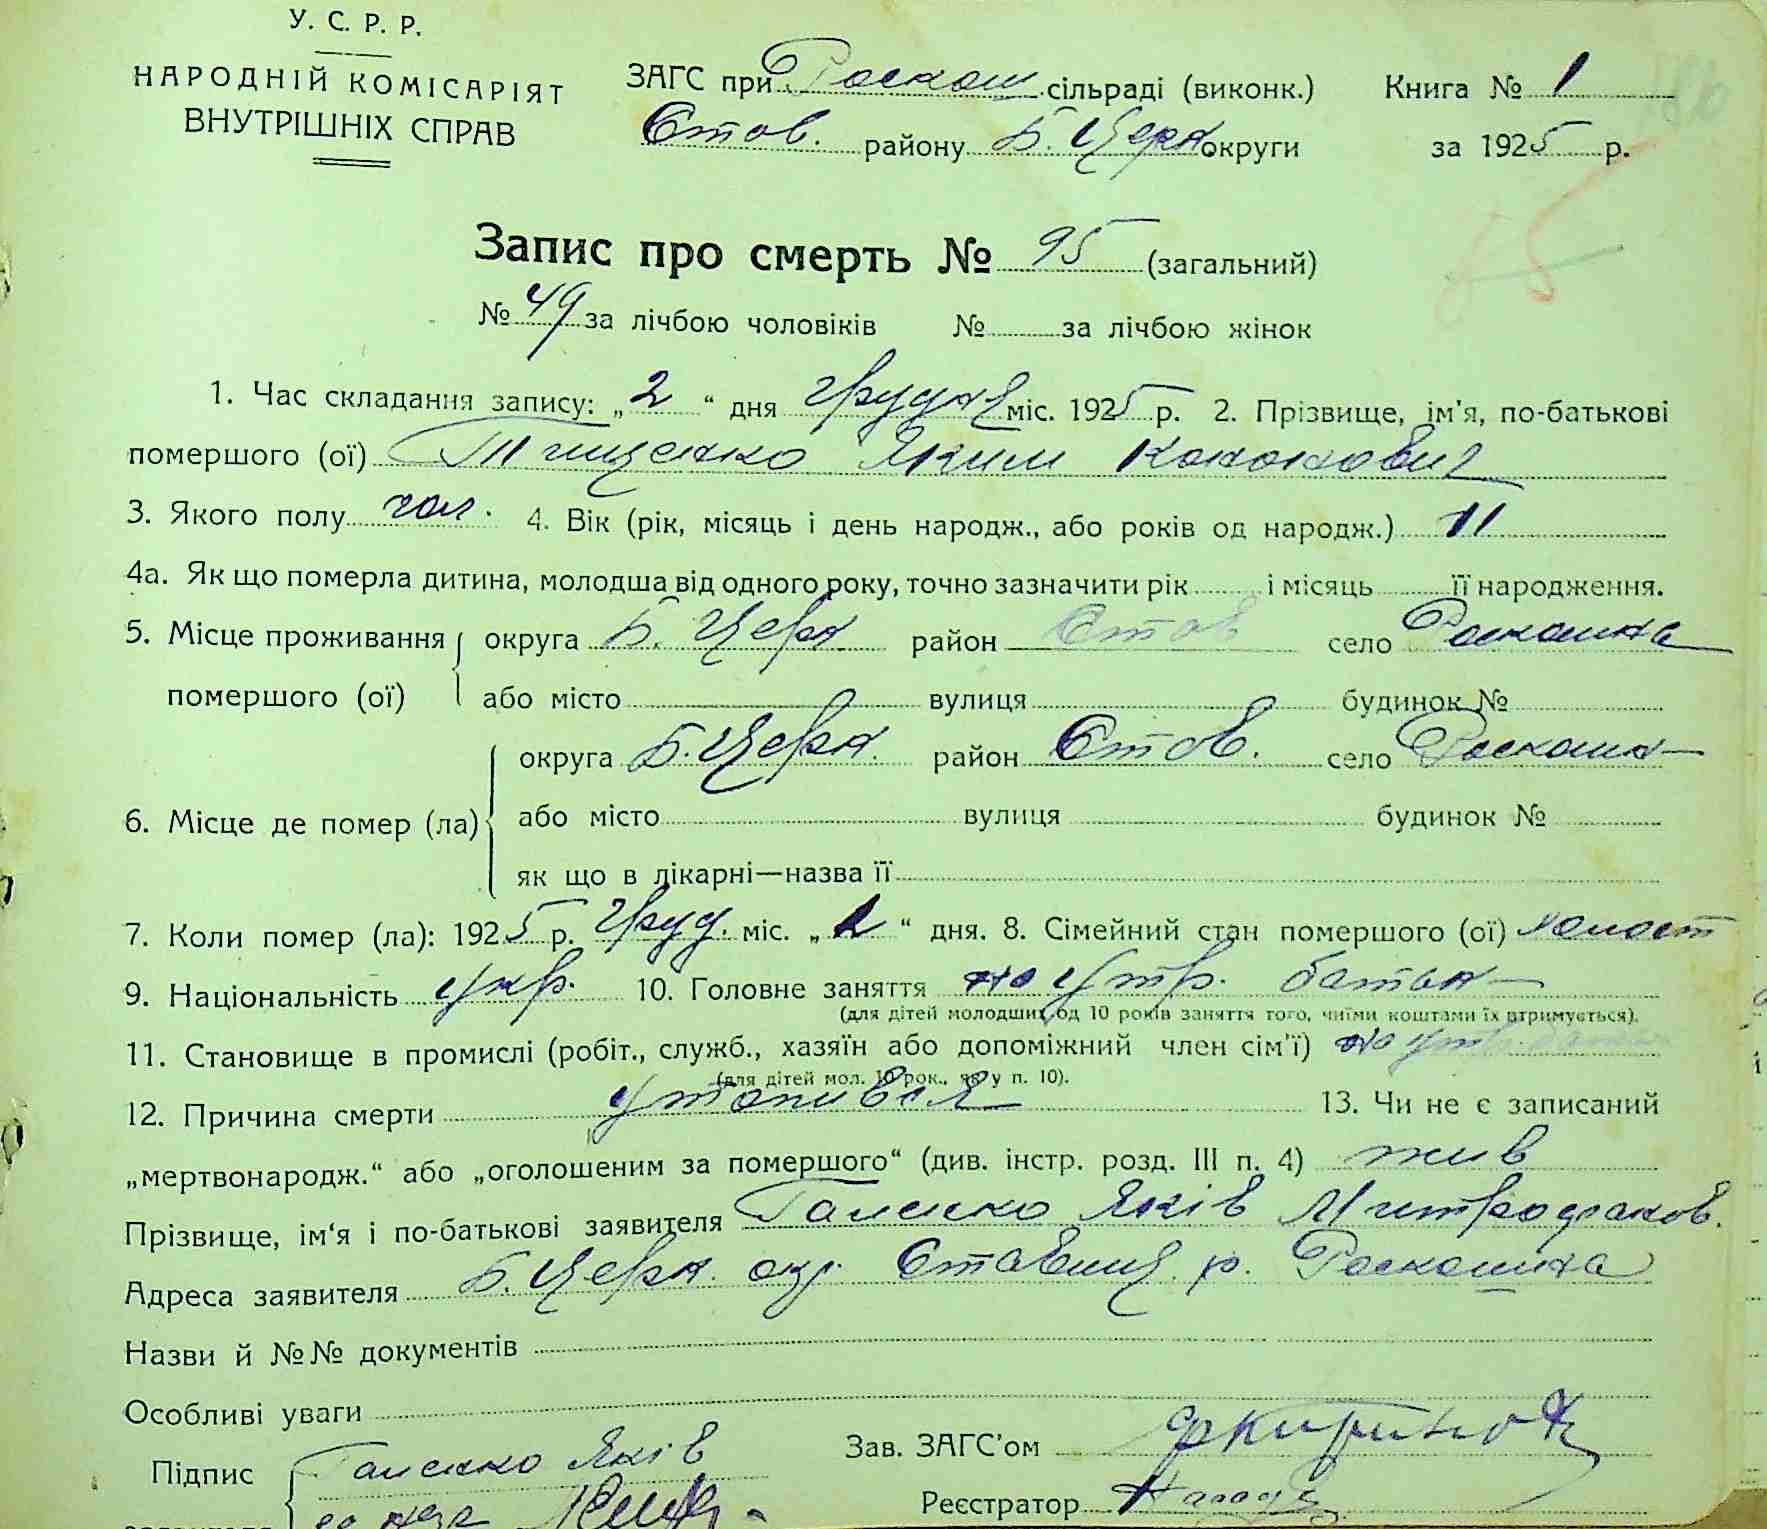 У. С. Р. Р.
НАРОДНІЙ КОМІСАРІЯТ
ВНУТРІШНІХ СПРАВ
ЗАГС при Роскош сільраді (виконк.) Книга № 1
Став. району Б. Церк округи за 1925 р.
Запис про смерть № 95 (загальний)
№ 49 за лічбою чоловіків № за лічбою жінок
1. Час складання запису: „2“ дня грудня міс. 1925 р. 2. Прізвище, ім'я, по-батькові
помершого (ої) Тищенко Яким Кононович
3. Якого полу чол. 4. Вік (рік, місяць і день народж., або років од народж.) 11
4а. Як що померла дитина, молодша від одного року, точно зазначити рік і місяць її народження.
5. Місце проживання округа Б. Церк район Став село Роскошна
помершого (ої) або місто вулиця будинок №
округа Б. Церк. район Став. село Роскошн
6. Місце де помер (ла) або місто вулиця будинок №
як що в лікарні—назва її
7. Коли помер (ла): 1925 р. груд. міс. „2“ дня. 8. Сімейний стан помершого (ої) холост
9. Національність укр. 10. Головне заняття на утр. батьк
(для дітей молодших од 10 років заняття того, чиїми коштами їх втримується).
11. Становище в промислі (робіт., служб., хазяїн або допоміжний член сім'ї) на утр. батьк
(для дітей мол. 10 рок., як у п. 10).
12. Причина смерти утопився 13. Чи не є записаний
„мертвонародж.“ або „оголошеним за помершого“ (див. інстр. розд. III п. 4) жив
Прізвище, ім'я і по-батькові заявителя Галенко Яків Митрофанов.
Адреса заявителя Б. Церк. окр. Ставищ. р. Роскошна
Назви й №№ документів
Особливі уваги
Підпис Галенко Яків Зав. ЗАГС'ом
Реєстратор
заявителя